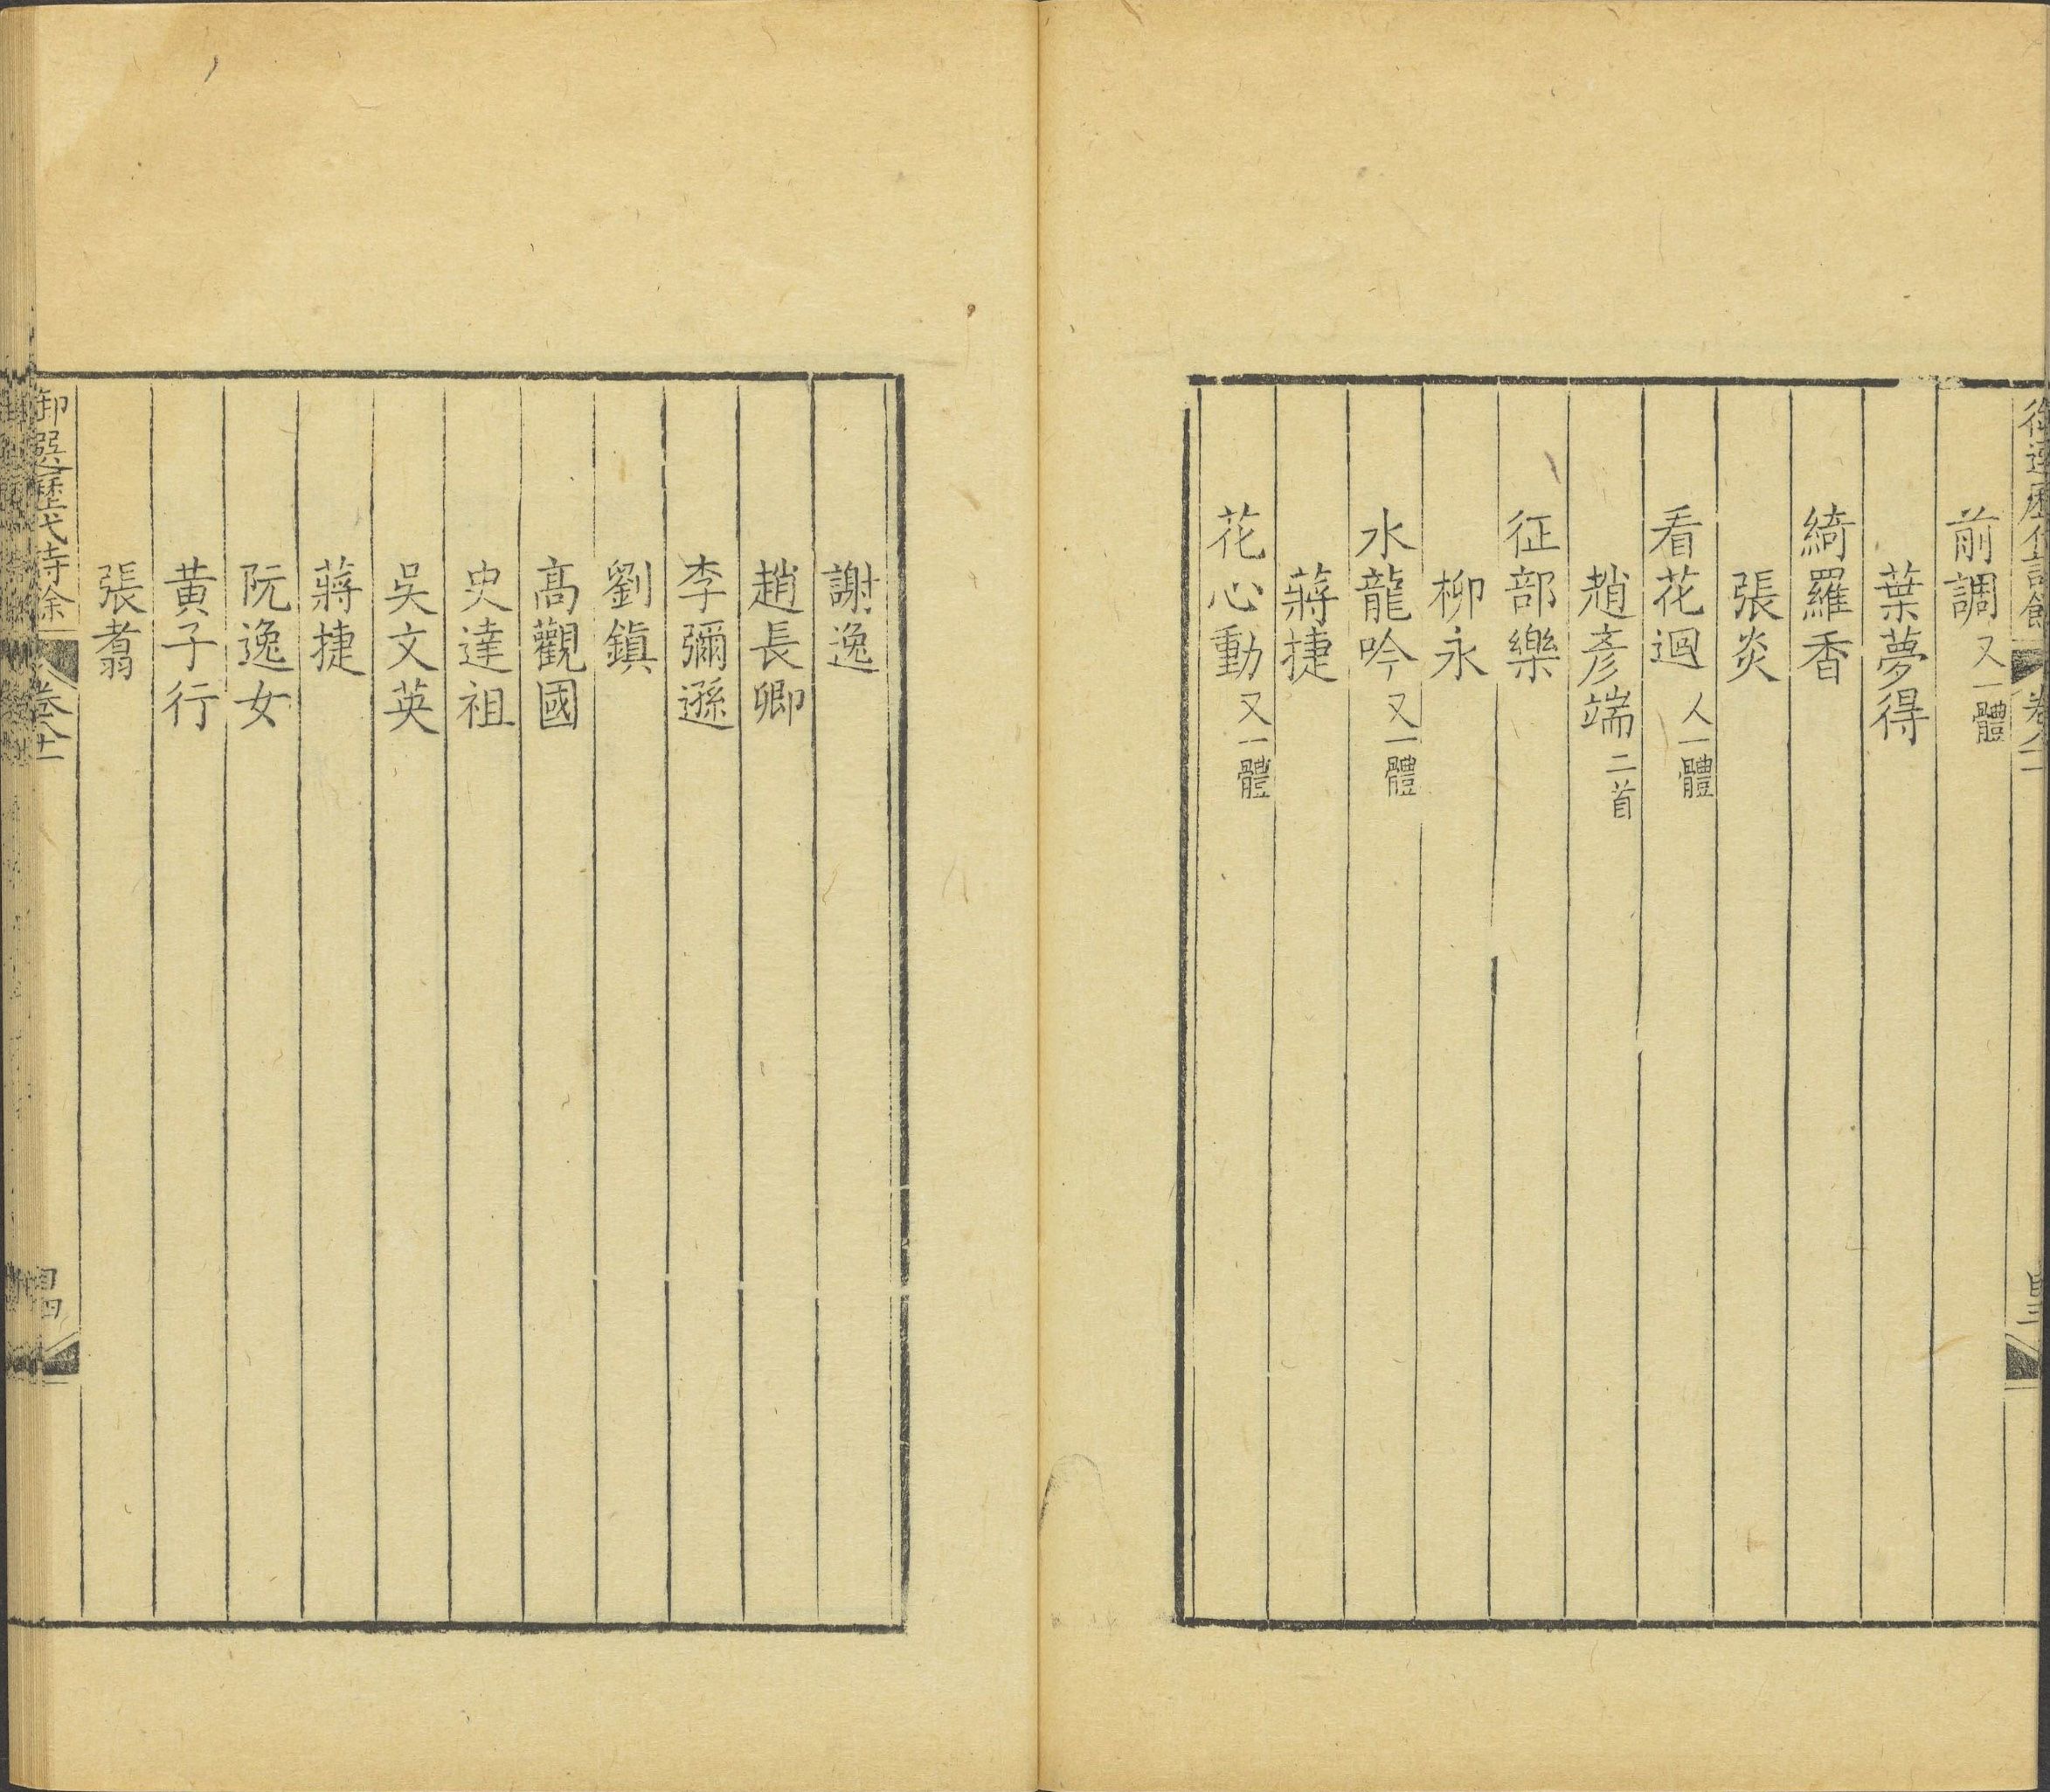 前調又一體
葉夢得
綺羅香
張炎
看花迴又一體
趙彥端二首
征部樂
柳永
水龍吟又一體
蔣捷
花心動又一體
謝逸
趙長卿
李彌遜
劉鎮
高觀國
史達祖
吳文英
蔣捷
阮逸女
黃子行
張翥
御選歷代詩餘